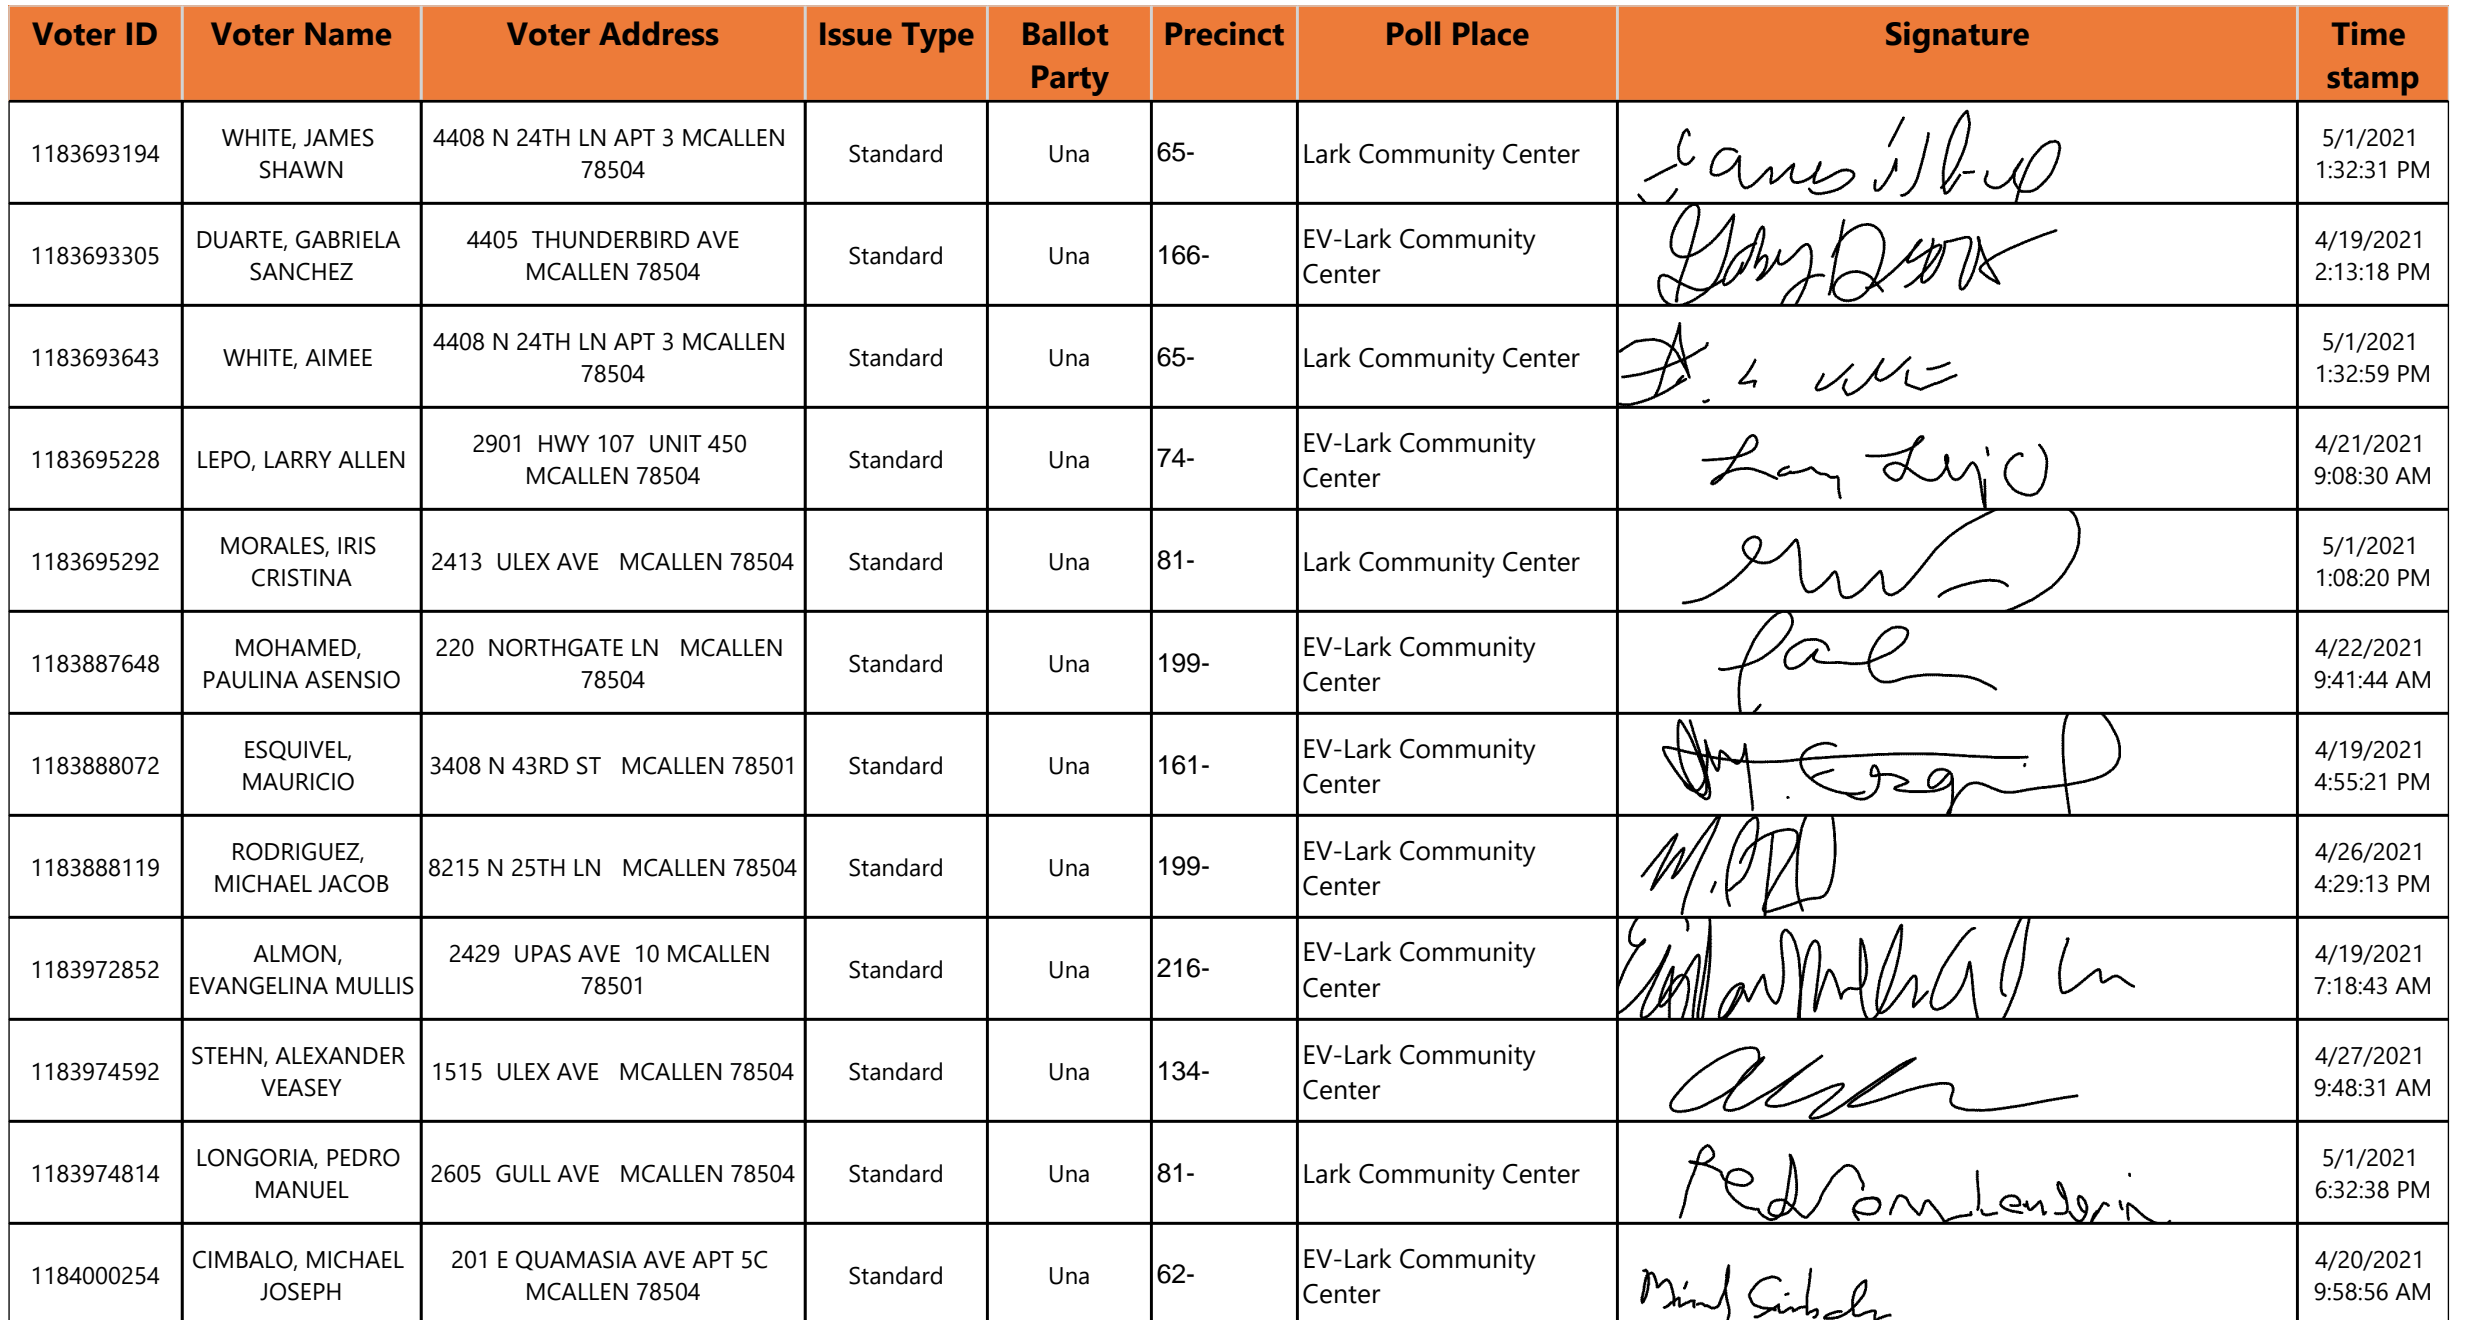 Voter ID Voter Name Voter Address Issue Type Ballot Party Precinct Poll Place Signature Time stamp
1183693194 WHITE, JAMES SHAWN 4408 N 24TH LN APT 3 MCALLEN 78504 Standard Una 65- Lark Community Center 5/1/2021 1:32:31 PM
1183693305 DUARTE, GABRIELA SANCHEZ 4405 THUNDERBIRD AVE MCALLEN 78504 Standard Una 166- EV-Lark Community Center 4/19/2021 2:13:18 PM
1183693643 WHITE, AIMEE 4408 N 24TH LN APT 3 MCALLEN 78504 Standard Una 65- Lark Community Center 5/1/2021 1:32:59 PM
1183695228 LEPO, LARRY ALLEN 2901 HWY 107 UNIT 450 MCALLEN 78504 Standard Una 74- EV-Lark Community Center 4/21/2021 9:08:30 AM
1183695292 MORALES, IRIS CRISTINA 2413 ULEX AVE MCALLEN 78504 Standard Una 81- Lark Community Center 5/1/2021 1:08:20 PM
1183887648 MOHAMED, PAULINA ASENSIO 220 NORTHGATE LN MCALLEN 78504 Standard Una 199- EV-Lark Community Center 4/22/2021 9:41:44 AM
1183888072 ESQUIVEL, MAURICIO 3408 N 43RD ST MCALLEN 78501 Standard Una 161- EV-Lark Community Center 4/19/2021 4:55:21 PM
1183888119 RODRIGUEZ, MICHAEL JACOB 8215 N 25TH LN MCALLEN 78504 Standard Una 199- EV-Lark Community Center 4/26/2021 4:29:13 PM
1183972852 ALMON, EVANGELINA MULLIS 2429 UPAS AVE 10 MCALLEN 78501 Standard Una 216- EV-Lark Community Center 4/19/2021 7:18:43 AM
1183974592 STEHN, ALEXANDER VEASEY 1515 ULEX AVE MCALLEN 78504 Standard Una 134- EV-Lark Community Center 4/27/2021 9:48:31 AM
1183974814 LONGORIA, PEDRO MANUEL 2605 GULL AVE MCALLEN 78504 Standard Una 81- Lark Community Center 5/1/2021 6:32:38 PM
1184000254 CIMBALO, MICHAEL JOSEPH 201 E QUAMASIA AVE APT 5C MCALLEN 78504 Standard Una 62- EV-Lark Community Center 4/20/2021 9:58:56 AM